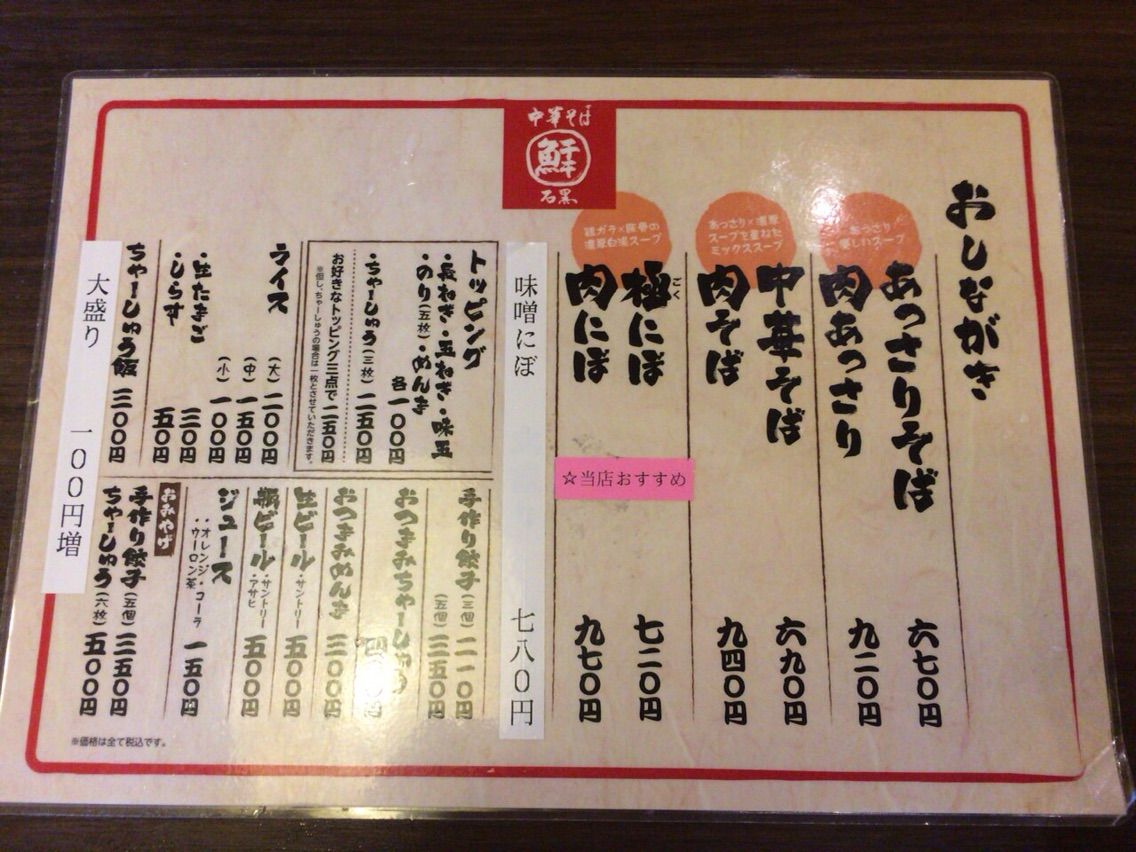 中華そば
鮮
石黒
おしながき
あっさり
優しいスープ
あっさりそば 六七〇円
肉あっさり 九二〇円
あっさり×濃厚
スープを重ねた
ミックススープ
中華そば 六九〇円
肉そば 九四〇円
鶏ガラ×豚骨の
濃厚白湯スープ
極にぼ 七二〇円
ごく
肉にぼ 九七〇円
☆当店おすすめ
味噌にぼ 七八〇円
トッピング
・長ねぎ・玉ねぎ・味玉
・のり(五枚)・めんま
各一〇〇円
・ちゃーしゅう(三枚) 二五〇円
お好きなトッピング三点で 二五〇円
※但し、ちゃーしゅうの場合は一枚とさせていただきます。
ライス
(大) 二〇〇円
(中) 一五〇円
(小) 一〇〇円
・生たまご 五〇円
・しらす 五〇円
ちゃーしゅう飯 三〇〇円
大盛り 一00円増
手作り餃子(三個) 二一〇円
(五個) 三五〇円
おつまみちゃーしゅう
おつまみめんま 三〇〇円
生ビール・サントリー 五〇〇円
瓶ビール・サントリー 五〇〇円
・アサヒ
ジュース
・オレンジ・コーラ 一五〇円
・ウーロン茶
おみやげ
手作り餃子(五個) 三五〇円
ちゃーしゅう(六枚) 五〇〇円
※価格は全て税込です。